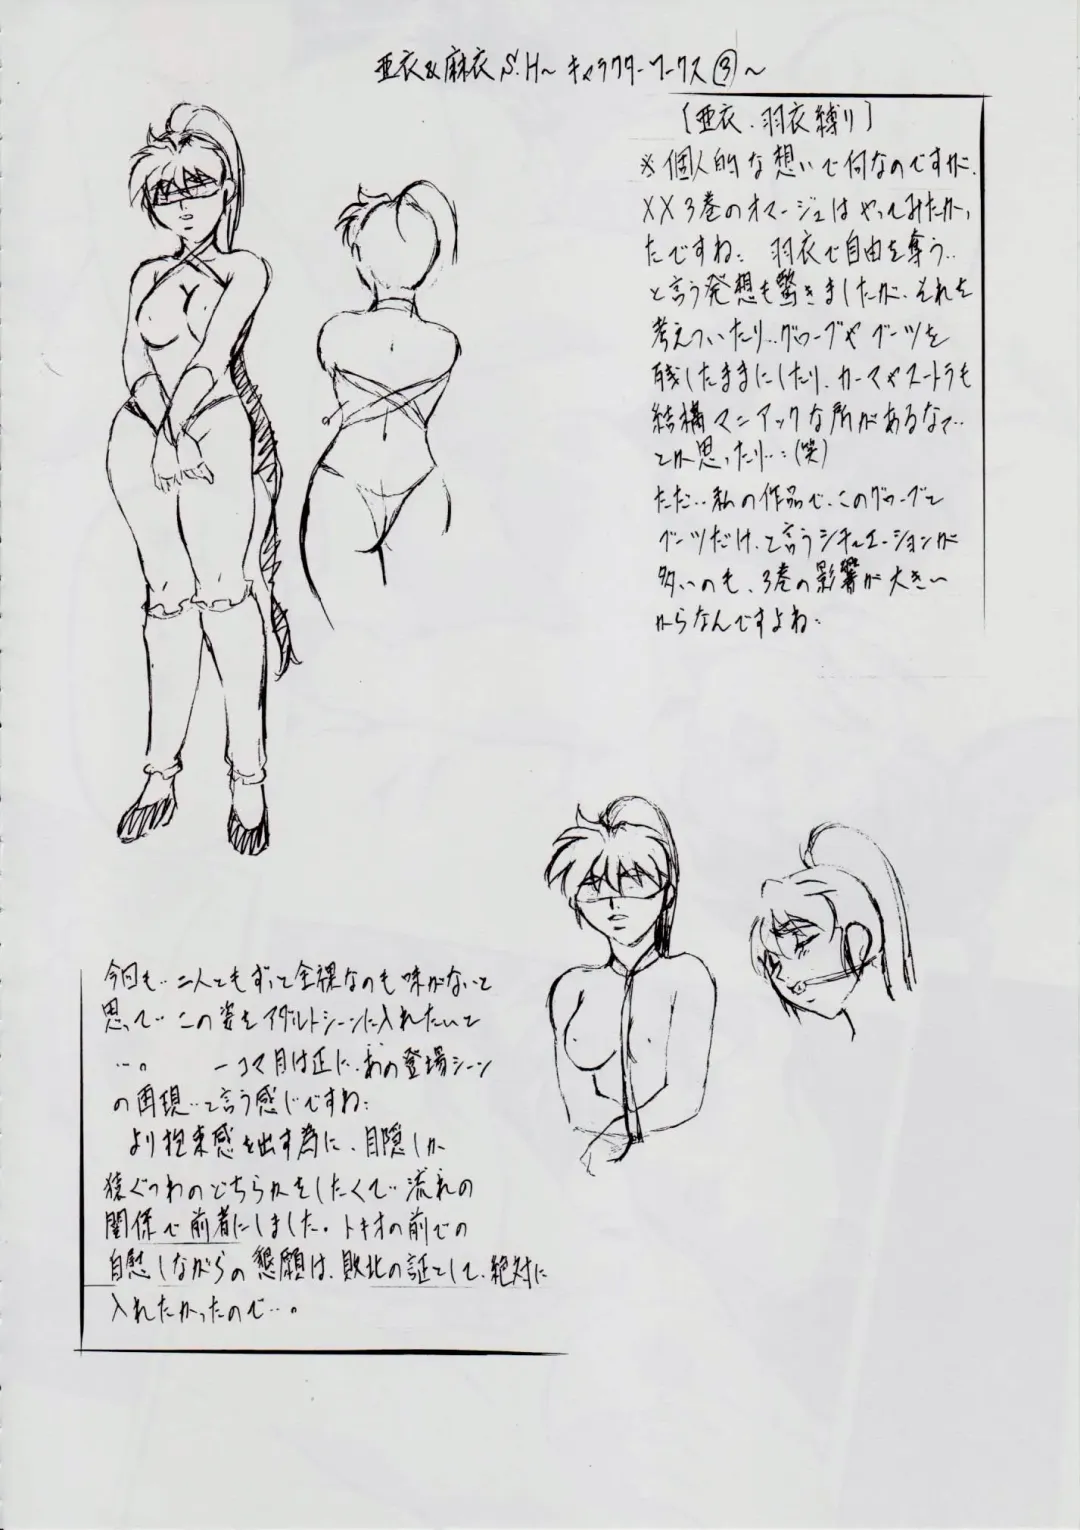 亜衣&麻衣 S.H～キャラクターワークス③～
[亜衣.羽衣縛り]
※個人的な想いで何なのですが、
XX3巻のオマージュはやってみたかっ
たですね： 羽衣で自由を奪う‥
と言う発想も驚きましたが、それを
考えついたり‥グローブやブーツを
残したままにしたり、カーマやスートラも
結構マニアックな所があるなで‥
とか思ったり‥：(笑)
ただ‥私の作品で、このグローブと
ブーツだけ、と言うシチュエーションが
多いのも、3巻の影響が大きい
からなんですよね‥
今回も‥二人ともずっと全裸なのも味がないと
思って‥この姿をアダルトシーンに入れたいて
‥。 一コマ目は正に、あの登場シーン
の再現‥と言う感じですね：
より拘束感を出す為に、目隠しか
猿ぐつわのどちらかをしたくて‥流れの
関係で前者にしました。トキオの前での
自慰しながらの懇願は、敗北の証として、絶対に
入れたかったので‥。